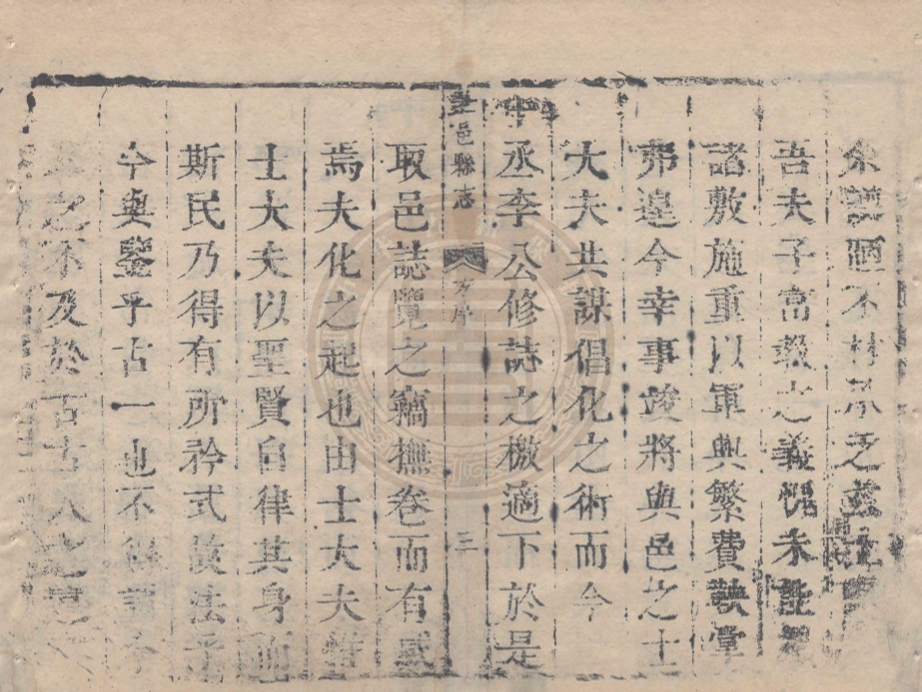 余譾陋不材承乏茲土
吾夫子富教之義愧未能
諸敷施重以軍興繁費鞅掌
弗遑今幸事竣將與邑之士
大夫共謀倡化之術而今
中丞李公修誌之檄適下於是
邑縣志 序 三
取邑誌覽之竊撫卷而有感
焉夫化之起也由士大夫
士大夫以聖賢自律其身而
斯民乃得有所矜式故法乎
今與鑒乎古一也不得謂今
之不及於古古人之